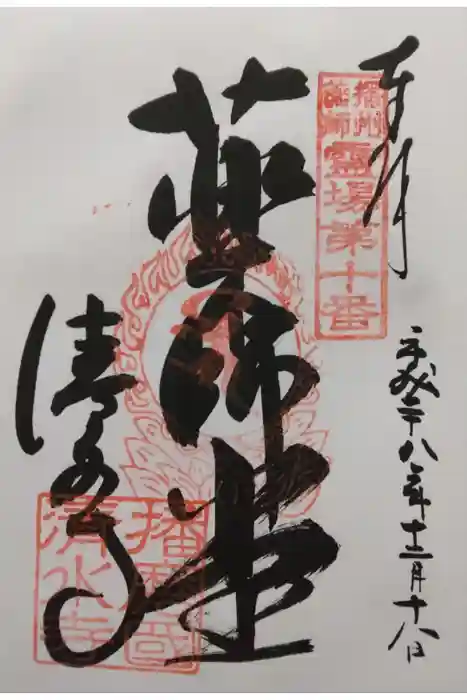 奉拝
播州薬師霊場第十番
平成二十八年十二月十八日
薬師堂
清水寺
播磨国清水寺